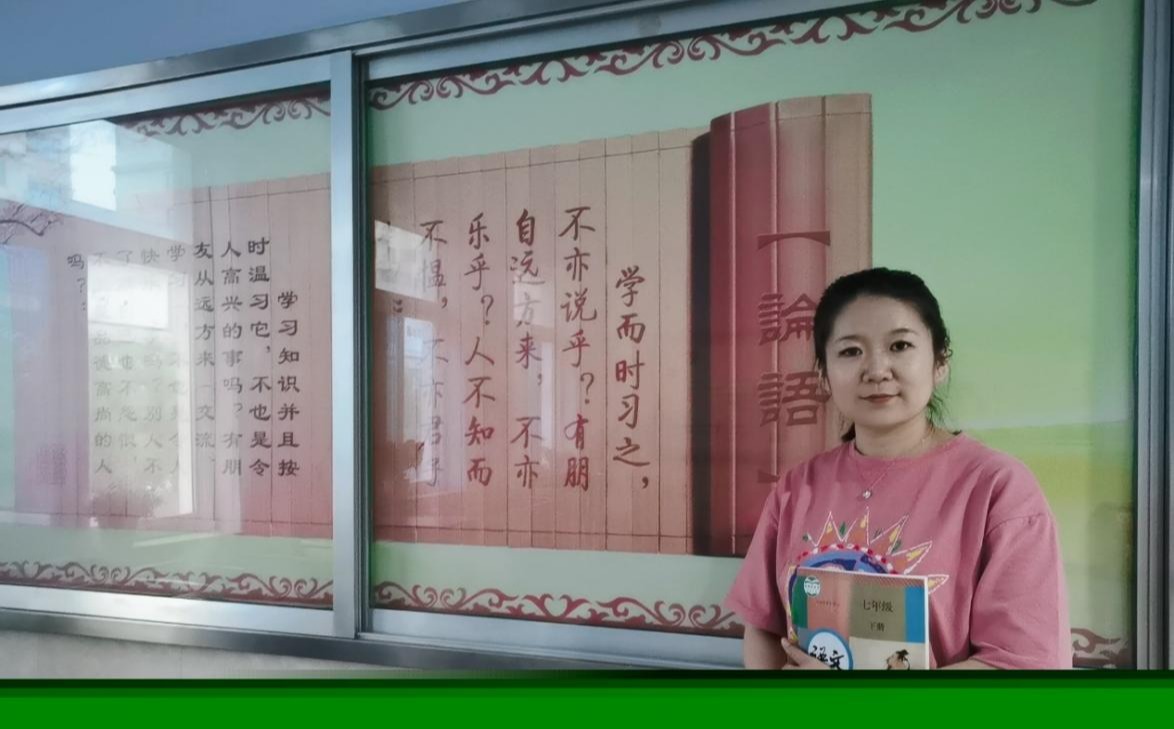 【論語】
学而时习之，
不亦说乎？有朋
自远方来，不亦
乐乎？人不知而
不愠，不亦君子
学习知识并且按
时温习它，不也是令
人高兴的事吗？有朋
友从远方来一交流
学习，也是令人
快吗？别人不
了，也不怨恨，
不品德高尚的人
吗？
七年级
下册
语文